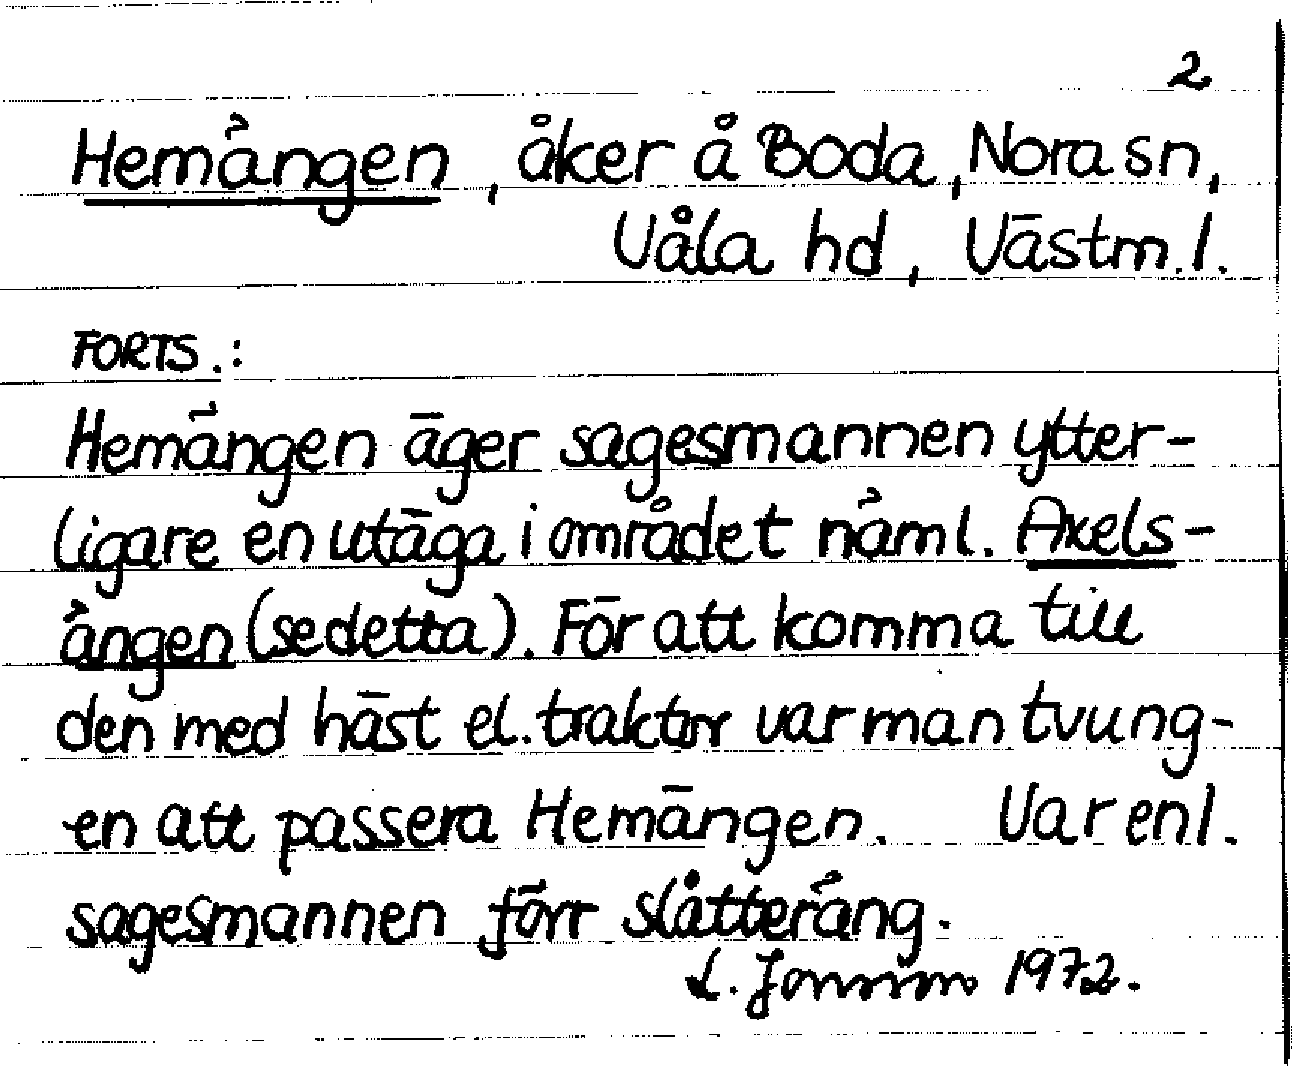 2
Hemängen, åker å Boda, Nora sn,
Våla hd, Västm.l.
FORTS.:
Hemängen äger sagesmannen ytter-
ligare en utäga i området näml. Axels-
ängen (se detta). För att komma till
den med häst el. traktor var man tvung-
en att passera Hemängen. Var enl.
sagesmannen förr slåtteräng.
L. Jonsson 1972.